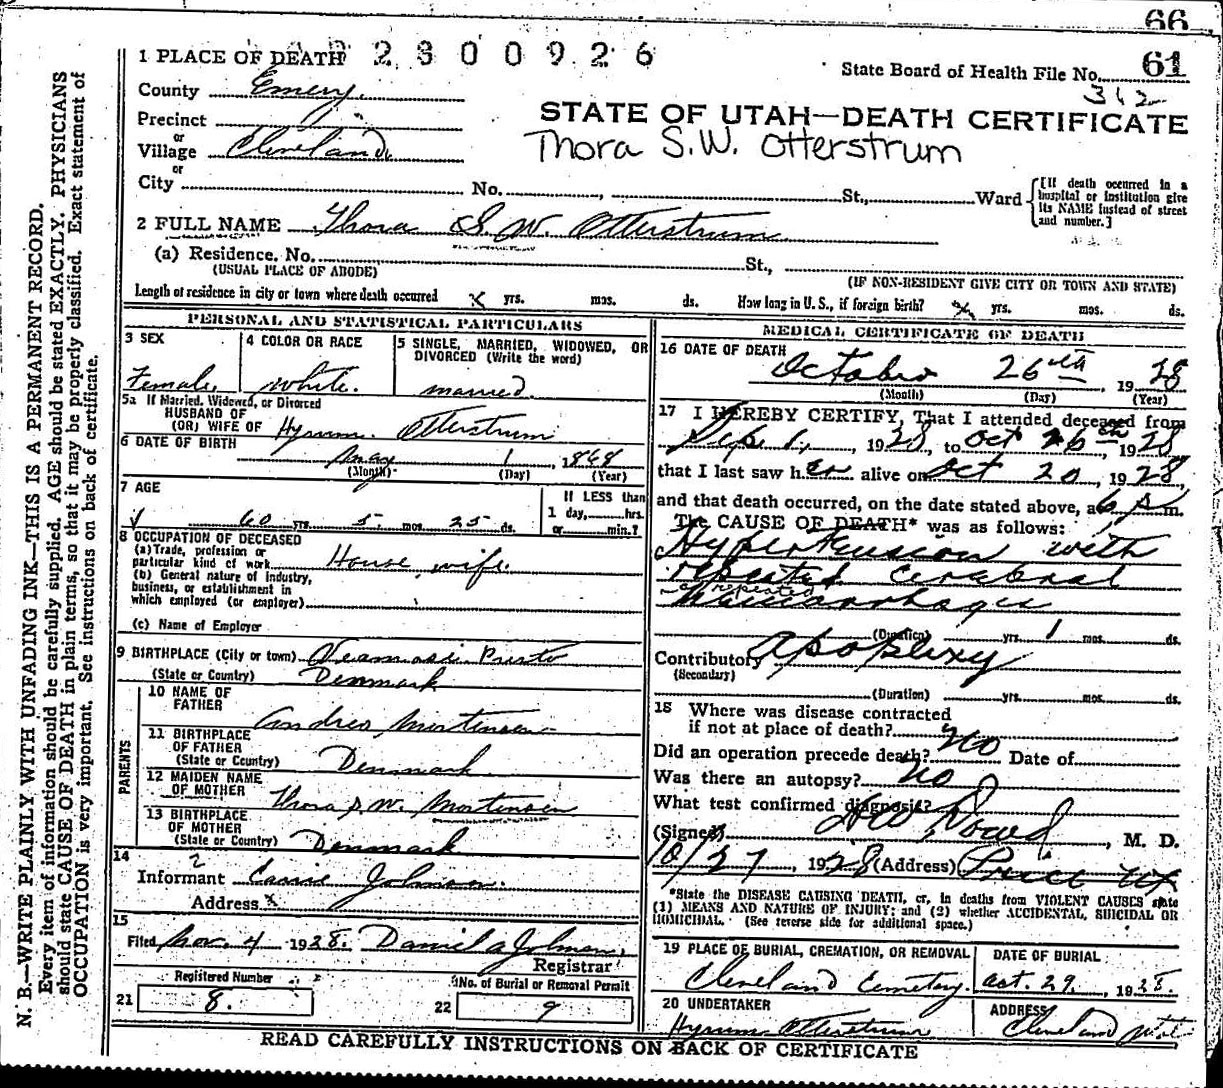 66
2300926
61
1 PLACE OF DEATH
State Board of Health File No. 312
County Emery.
STATE OF UTAH—DEATH CERTIFICATE
Precinct
or
Village Cleveland.
Thora S.W. Otterstrum
or
City No. St., Ward
[If death occurred in a hospital or institution give its NAME instead of street and number.]
2 FULL NAME Thora S. W. Otterstrum
(a) Residence. No. St.,
(USUAL PLACE OF ABODE) (IF NON-RESIDENT GIVE CITY OR TOWN AND STATE)
Length of residence in city or town where death occurred x yrs. mos. ds. How long in U. S., if foreign birth? x yrs. mos. ds.
PERSONAL AND STATISTICAL PARTICULARS
3 SEX
Female.
4 COLOR OR RACE
white.
5 SINGLE, MARRIED, WIDOWED, OR DIVORCED (Write the word)
married.
5a If Married, Widowed, or Divorced
HUSBAND OF
(OR) WIFE OF Hyrum Otterstrum
6 DATE OF BIRTH
May 1, 1868
(Month) (Day) (Year)
7 AGE
60 yrs. 5 mos. 25 ds.
If LESS than
1 day, hrs.
or min.?
8 OCCUPATION OF DECEASED
(a) Trade, profession or
particular kind of work House wife.
(b) General nature of industry,
business, or establishment in
which employed (or employer)
(c) Name of Employer
9 BIRTHPLACE (City or town)
(State or Country) Denmark
PARENTS
10 NAME OF
FATHER Andrew Mortensen
11 BIRTHPLACE
OF FATHER
(State or Country) Denmark
12 MAIDEN NAME
OF MOTHER Thora S. W. Mortensen
13 BIRTHPLACE
OF MOTHER
(State or Country) Denmark
14 2
Informant Carrie Johnson.
Address x
15
Filed Nov. 4 1928. Daniel A Johnson.
Registrar
Registered Number
21 8.
No. of Burial or Removal Permit
22 9
MEDICAL CERTIFICATE OF DEATH
16 DATE OF DEATH
October 26th, 1928
(Month) (Day) (Year)
17 I HEREBY CERTIFY, That I attended deceased from
Sep 1, 1928, to Oct 26th, 1928
that I last saw her alive on Oct 20, 1928,
and that death occurred, on the date stated above, at 6 P. m.
The CAUSE OF DEATH* was as follows:
Hypertension with
repeated cerebral
repeated
Haemorrhages
(Duration) yrs. 1 mos. ds.
Contributory Apoplexy
(Secondary)
(Duration) yrs. mos. ds.
18 Where was disease contracted
if not at place of death?
Did an operation precede death? no Date of
Was there an autopsy? no
What test confirmed diagnosis?
(Signed) Dowd, M. D.
10/27, 1928 (Address) Price Ut
*State the DISEASE CAUSING DEATH, or, in deaths from VIOLENT CAUSES state
(1) MEANS AND NATURE OF INJURY; and (2) whether ACCIDENTAL, SUICIDAL OR
HOMICIDAL. (See reverse side for additional space.)
19 PLACE OF BURIAL, CREMATION, OR REMOVAL
Cleveland Cemetery.
DATE OF BURIAL
Oct. 29., 1928.
20 UNDERTAKER
Hyrum Otterstrum
ADDRESS
Cleveland Utah
READ CAREFULLY INSTRUCTIONS ON BACK OF CERTIFICATE
N. B.—WRITE PLAINLY WITH UNFADING INK—THIS IS A PERMANENT RECORD.
Every item of information should be carefully supplied. AGE should be stated EXACTLY. PHYSICIANS
should state CAUSE OF DEATH in plain terms, so that it may be properly classified. Exact statement of
OCCUPATION is very important. See instructions on back of certificate.